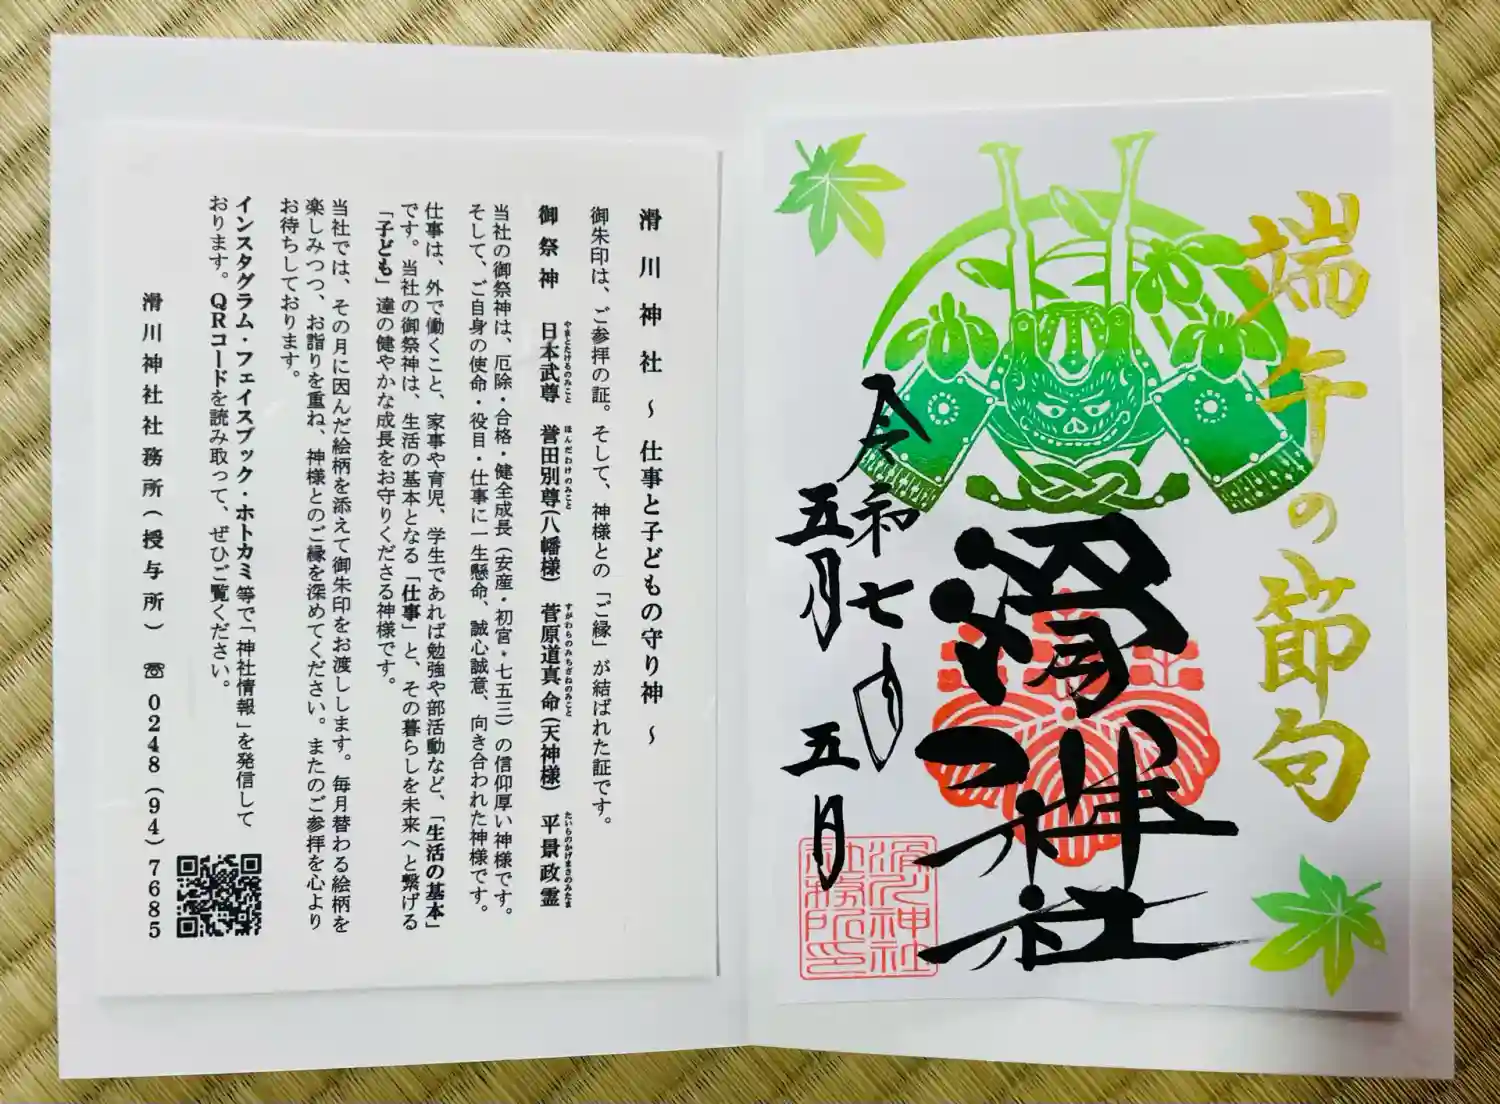 端午の節句
滑川神社
令和七年
五月五日
滑川神社社務所印
滑川神社 ～ 仕事と子どもの守り神 ～
御朱印は、ご参拝の証。そして、神様との「ご縁」が結ばれた証です。
御祭神 日本武尊 誉田別尊(八幡様) 菅原道真命(天神様) 平景政霊
やまとたけるのみこと ほんだわけのみこと すがわらのみちざねのみこと たいらのかげまさのみたま
当社の御祭神は、厄除・合格・健全成長(安産・初宮・七五三)の信仰厚い神様です。
そして、ご自身の使命・役目・仕事に一生懸命、誠心誠意、向き合われた神様です。
仕事は、外で働くこと、家事や育児、学生であれば勉強や部活動など、「生活の基本」
です。当社の御祭神は、生活の基本となる「仕事」と、その暮らしを未来へと繋げる
「子ども」達の健やかな成長をお守りくださる神様です。
当社では、その月に因んだ絵柄を添えて御朱印をお渡しします。毎月替わる絵柄を
楽しみつつ、お詣りを重ね、神様とのご縁を深めてください。またのご参拝を心より
お待ちしております。
インスタグラム・フェイスブック・ホトカミ等で「神社情報」を発信して
おります。QRコードを読み取って、ぜひご覧ください。
滑川神社社務所(授与所) ☏ 0248(94)7685